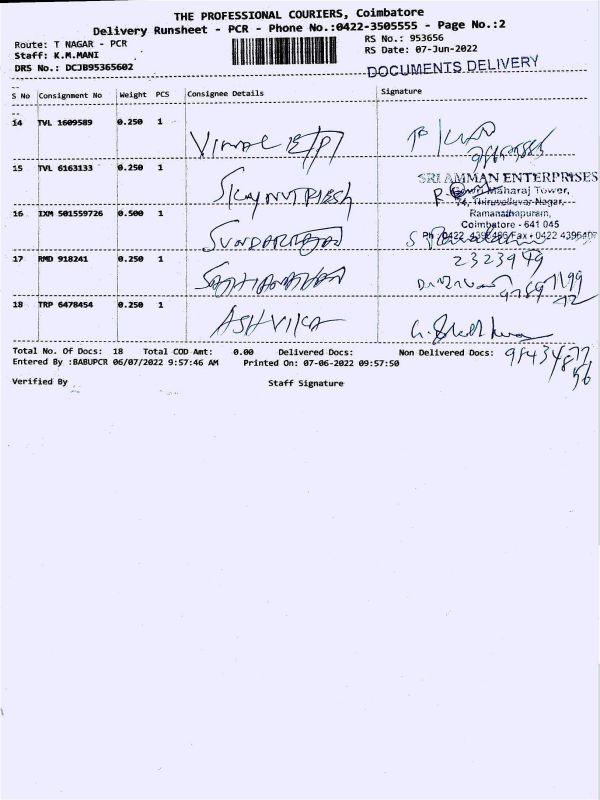 THE PROFESSIONAL COURIERS, Coimbatore
Delivery Runsheet - PCR - Phone No.:0422-3505555 - Page No.:2
Route: T NAGAR - PCR
RS No.: 953656
Staff: K.M.MANI
RS Date: 07-Jun-2022
DRS No.: DCJB95365602
DOCUMENTS DELIVERY
S No Consignment No Weight PCS Consignee Details Signature
14 TVL 1609589 0.250 1
15 TVL 6163133 0.250 1
SRI AMMAN ENTERPRISES
Gowri Maharaj Tower,
74, Thiruvalluvar Nagar,
Ramanathapuram,
Coimbatore - 641 045
16 IXM 501559726 0.500 1 SUNDARRAJAN
17 RMD 918241 0.250 1
2323949
18 TRP 6478454 0.250 1 ASHVIKA
Total No. Of Docs: 18 Total COD Amt: 0.00 Delivered Docs: Non Delivered Docs:
Entered By :BABUPCR 06/07/2022 9:57:46 AM Printed On: 07-06-2022 09:57:50
Verified By Staff Signature